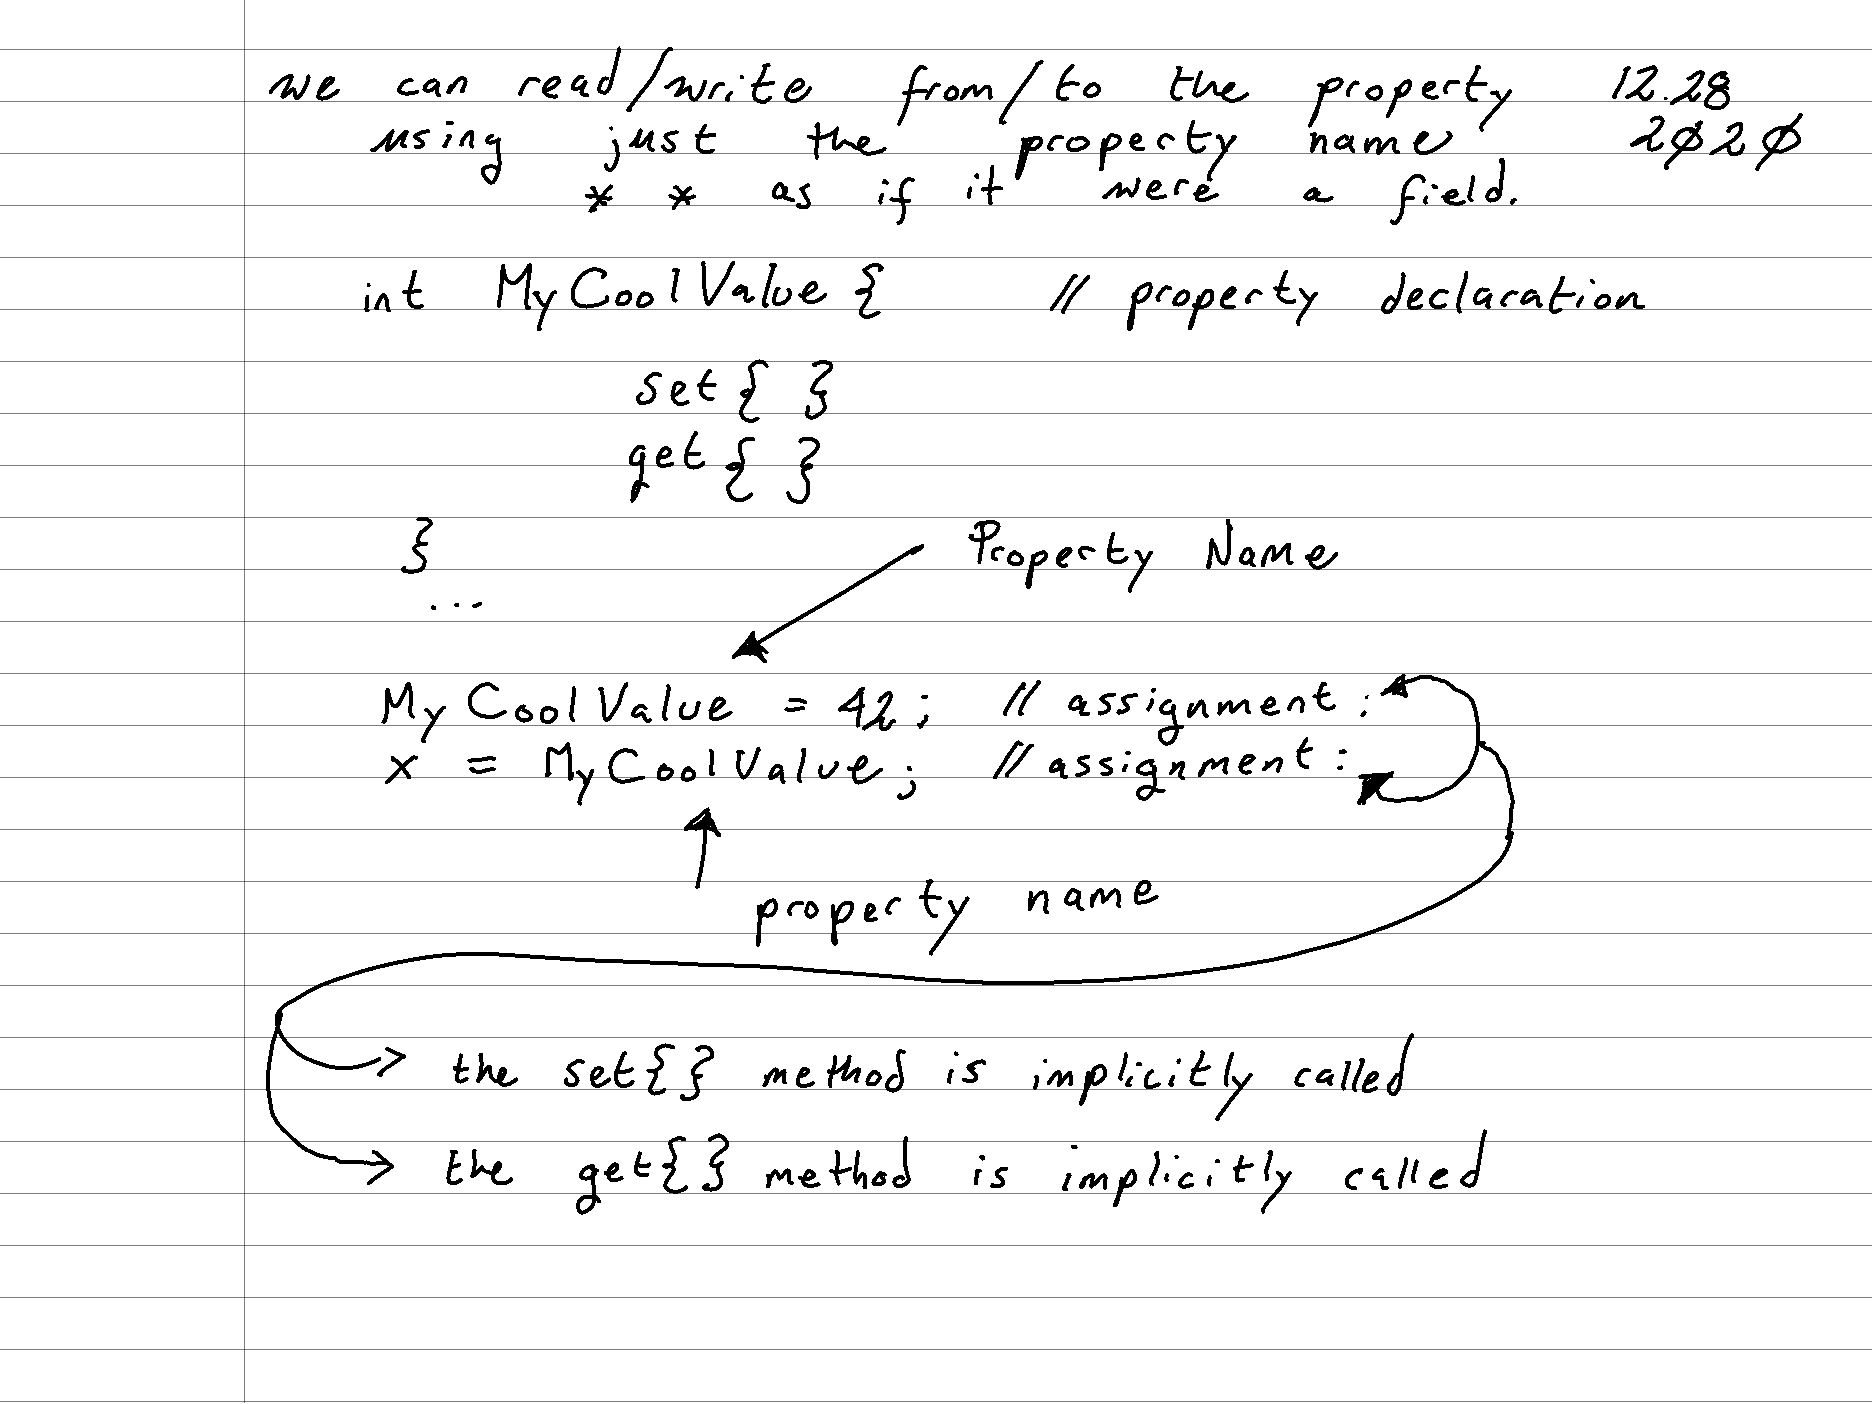 we can read/write from/to the property 12.28
using just the property name 2020
* * as if it were a field.
int MyCoolValue { // property declaration
set { }
get { }
}
...
Property Name
MyCoolValue = 42; // assignment:
x = MyCoolValue; // assignment:
property name
the set{} method is implicitly called
the get{} method is implicitly called